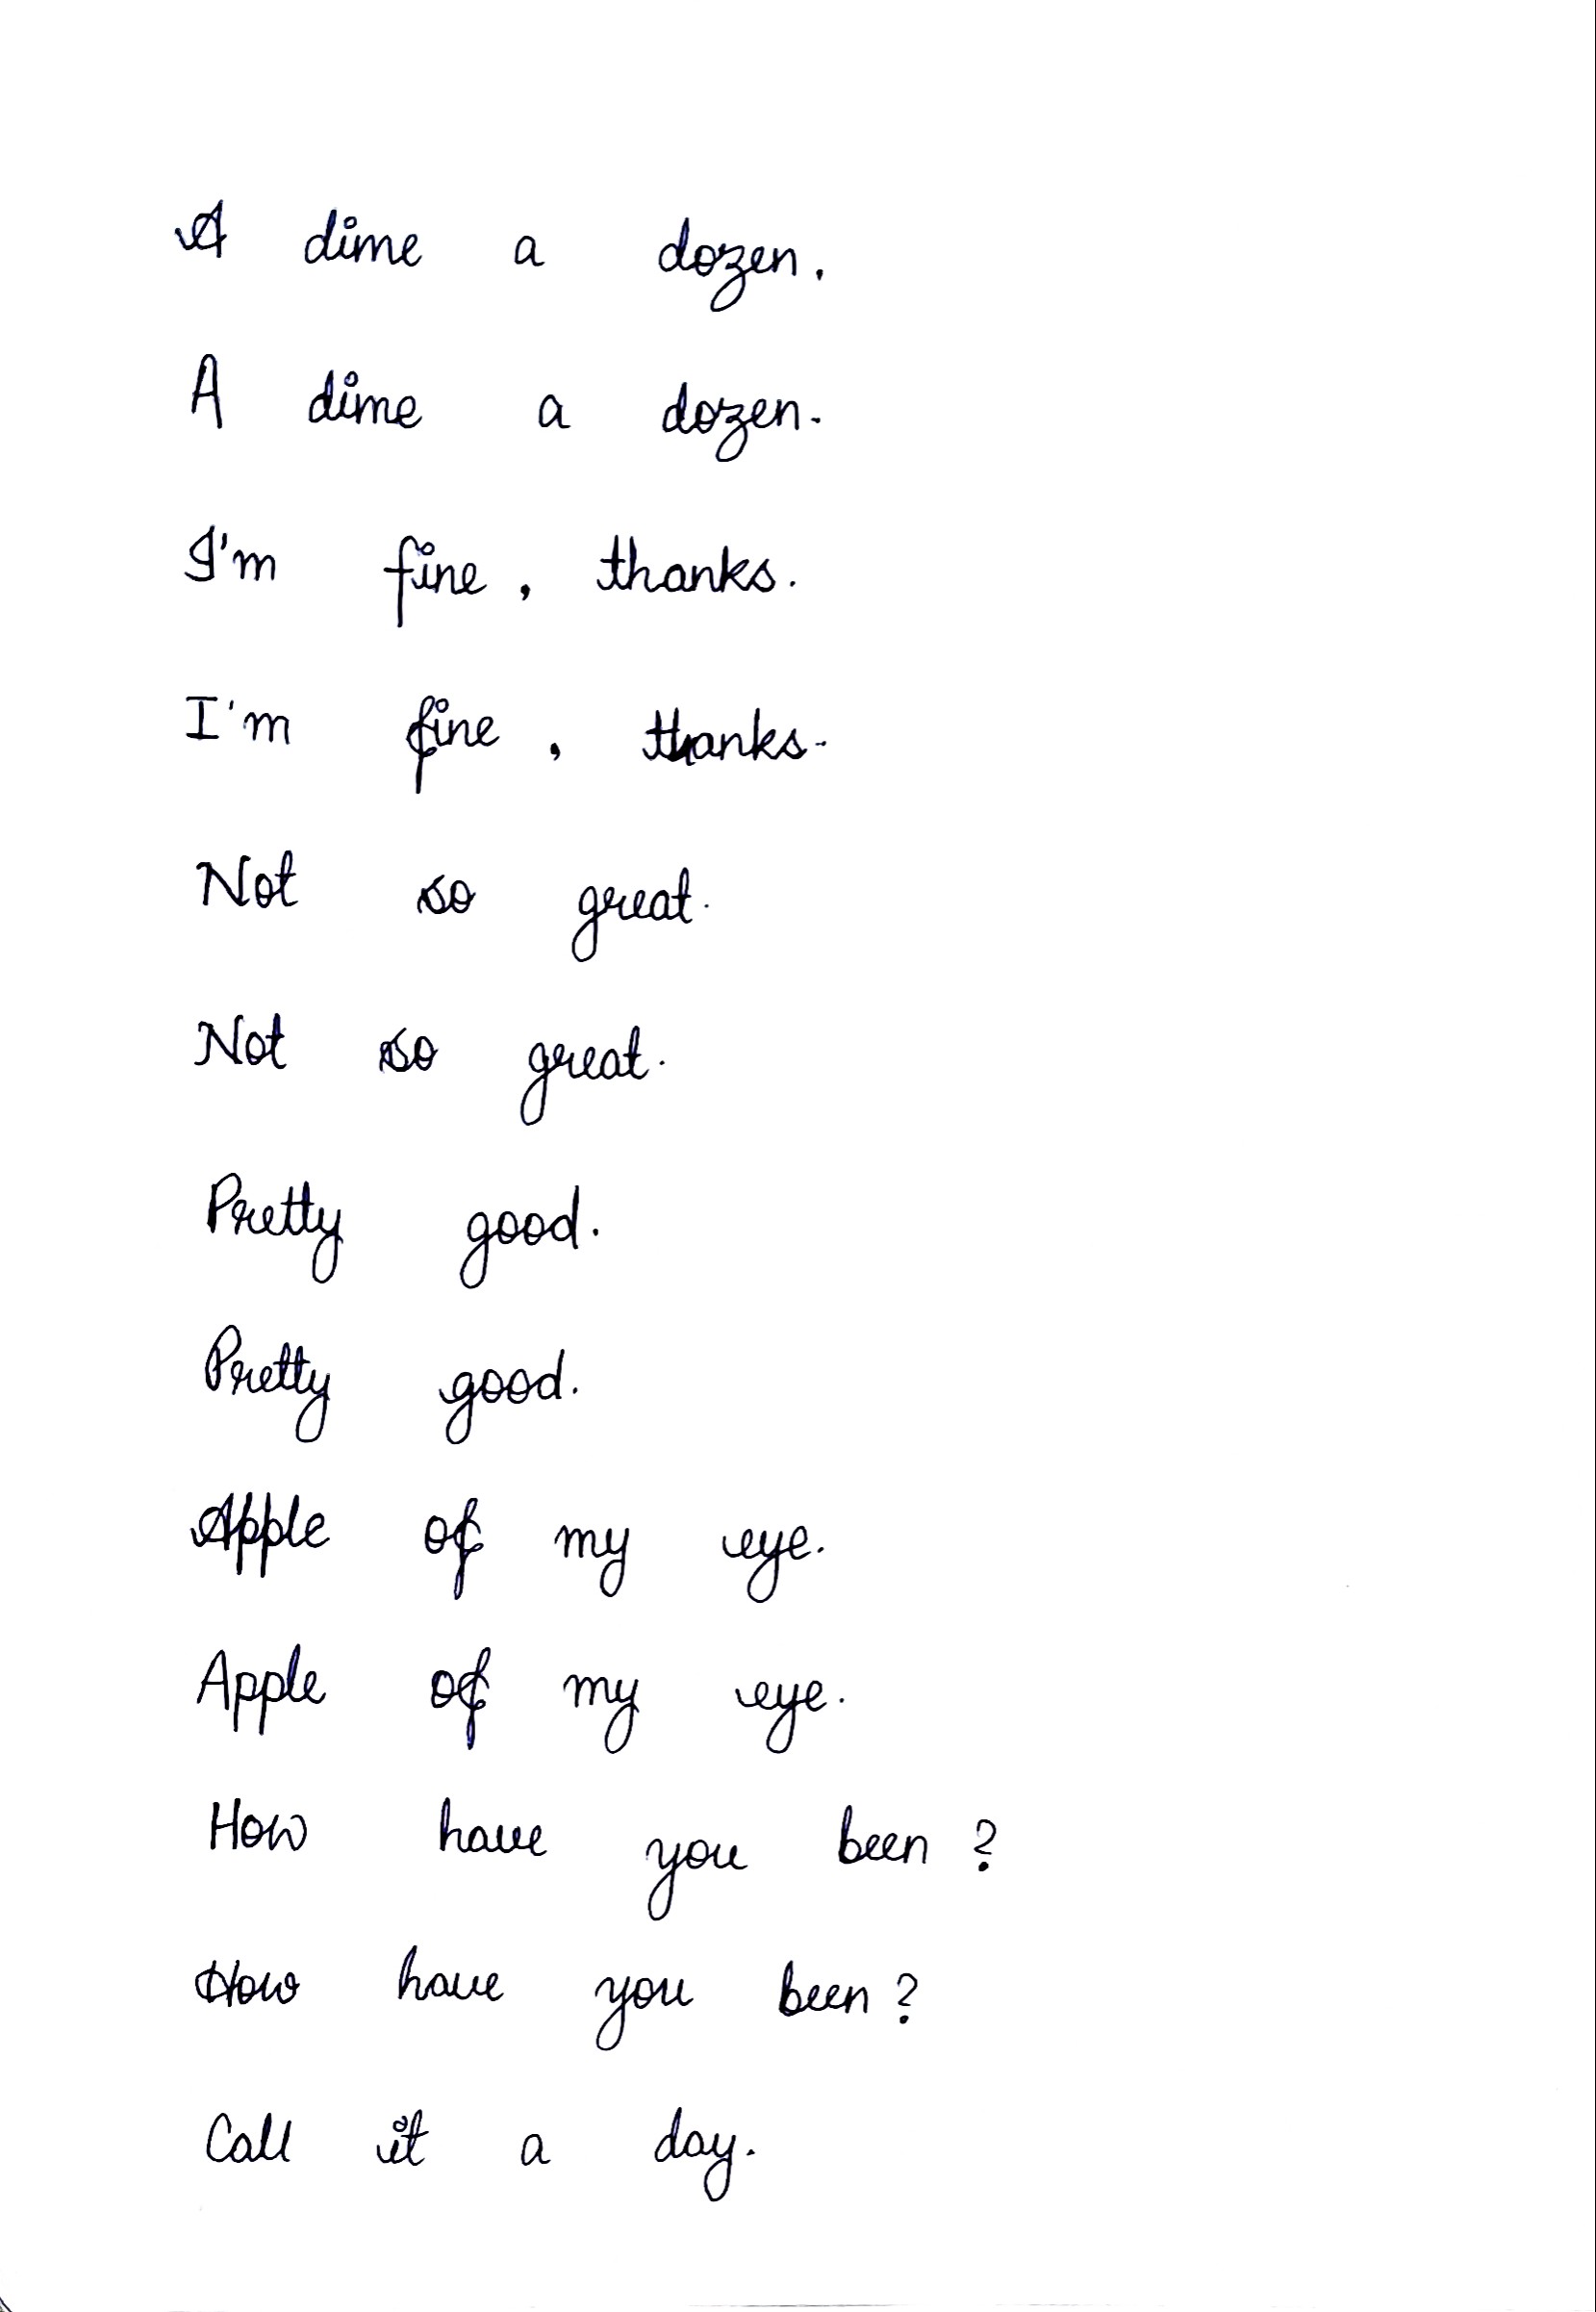 A dime a dozen.
A dime a dozen.
I'm fine, thanks.
I'm fine, thanks.
Not so great.
Not so great.
Pretty good.
Pretty good.
Apple of my eye.
Apple of my eye.
How have you been?
How have you been?
Call it a day.